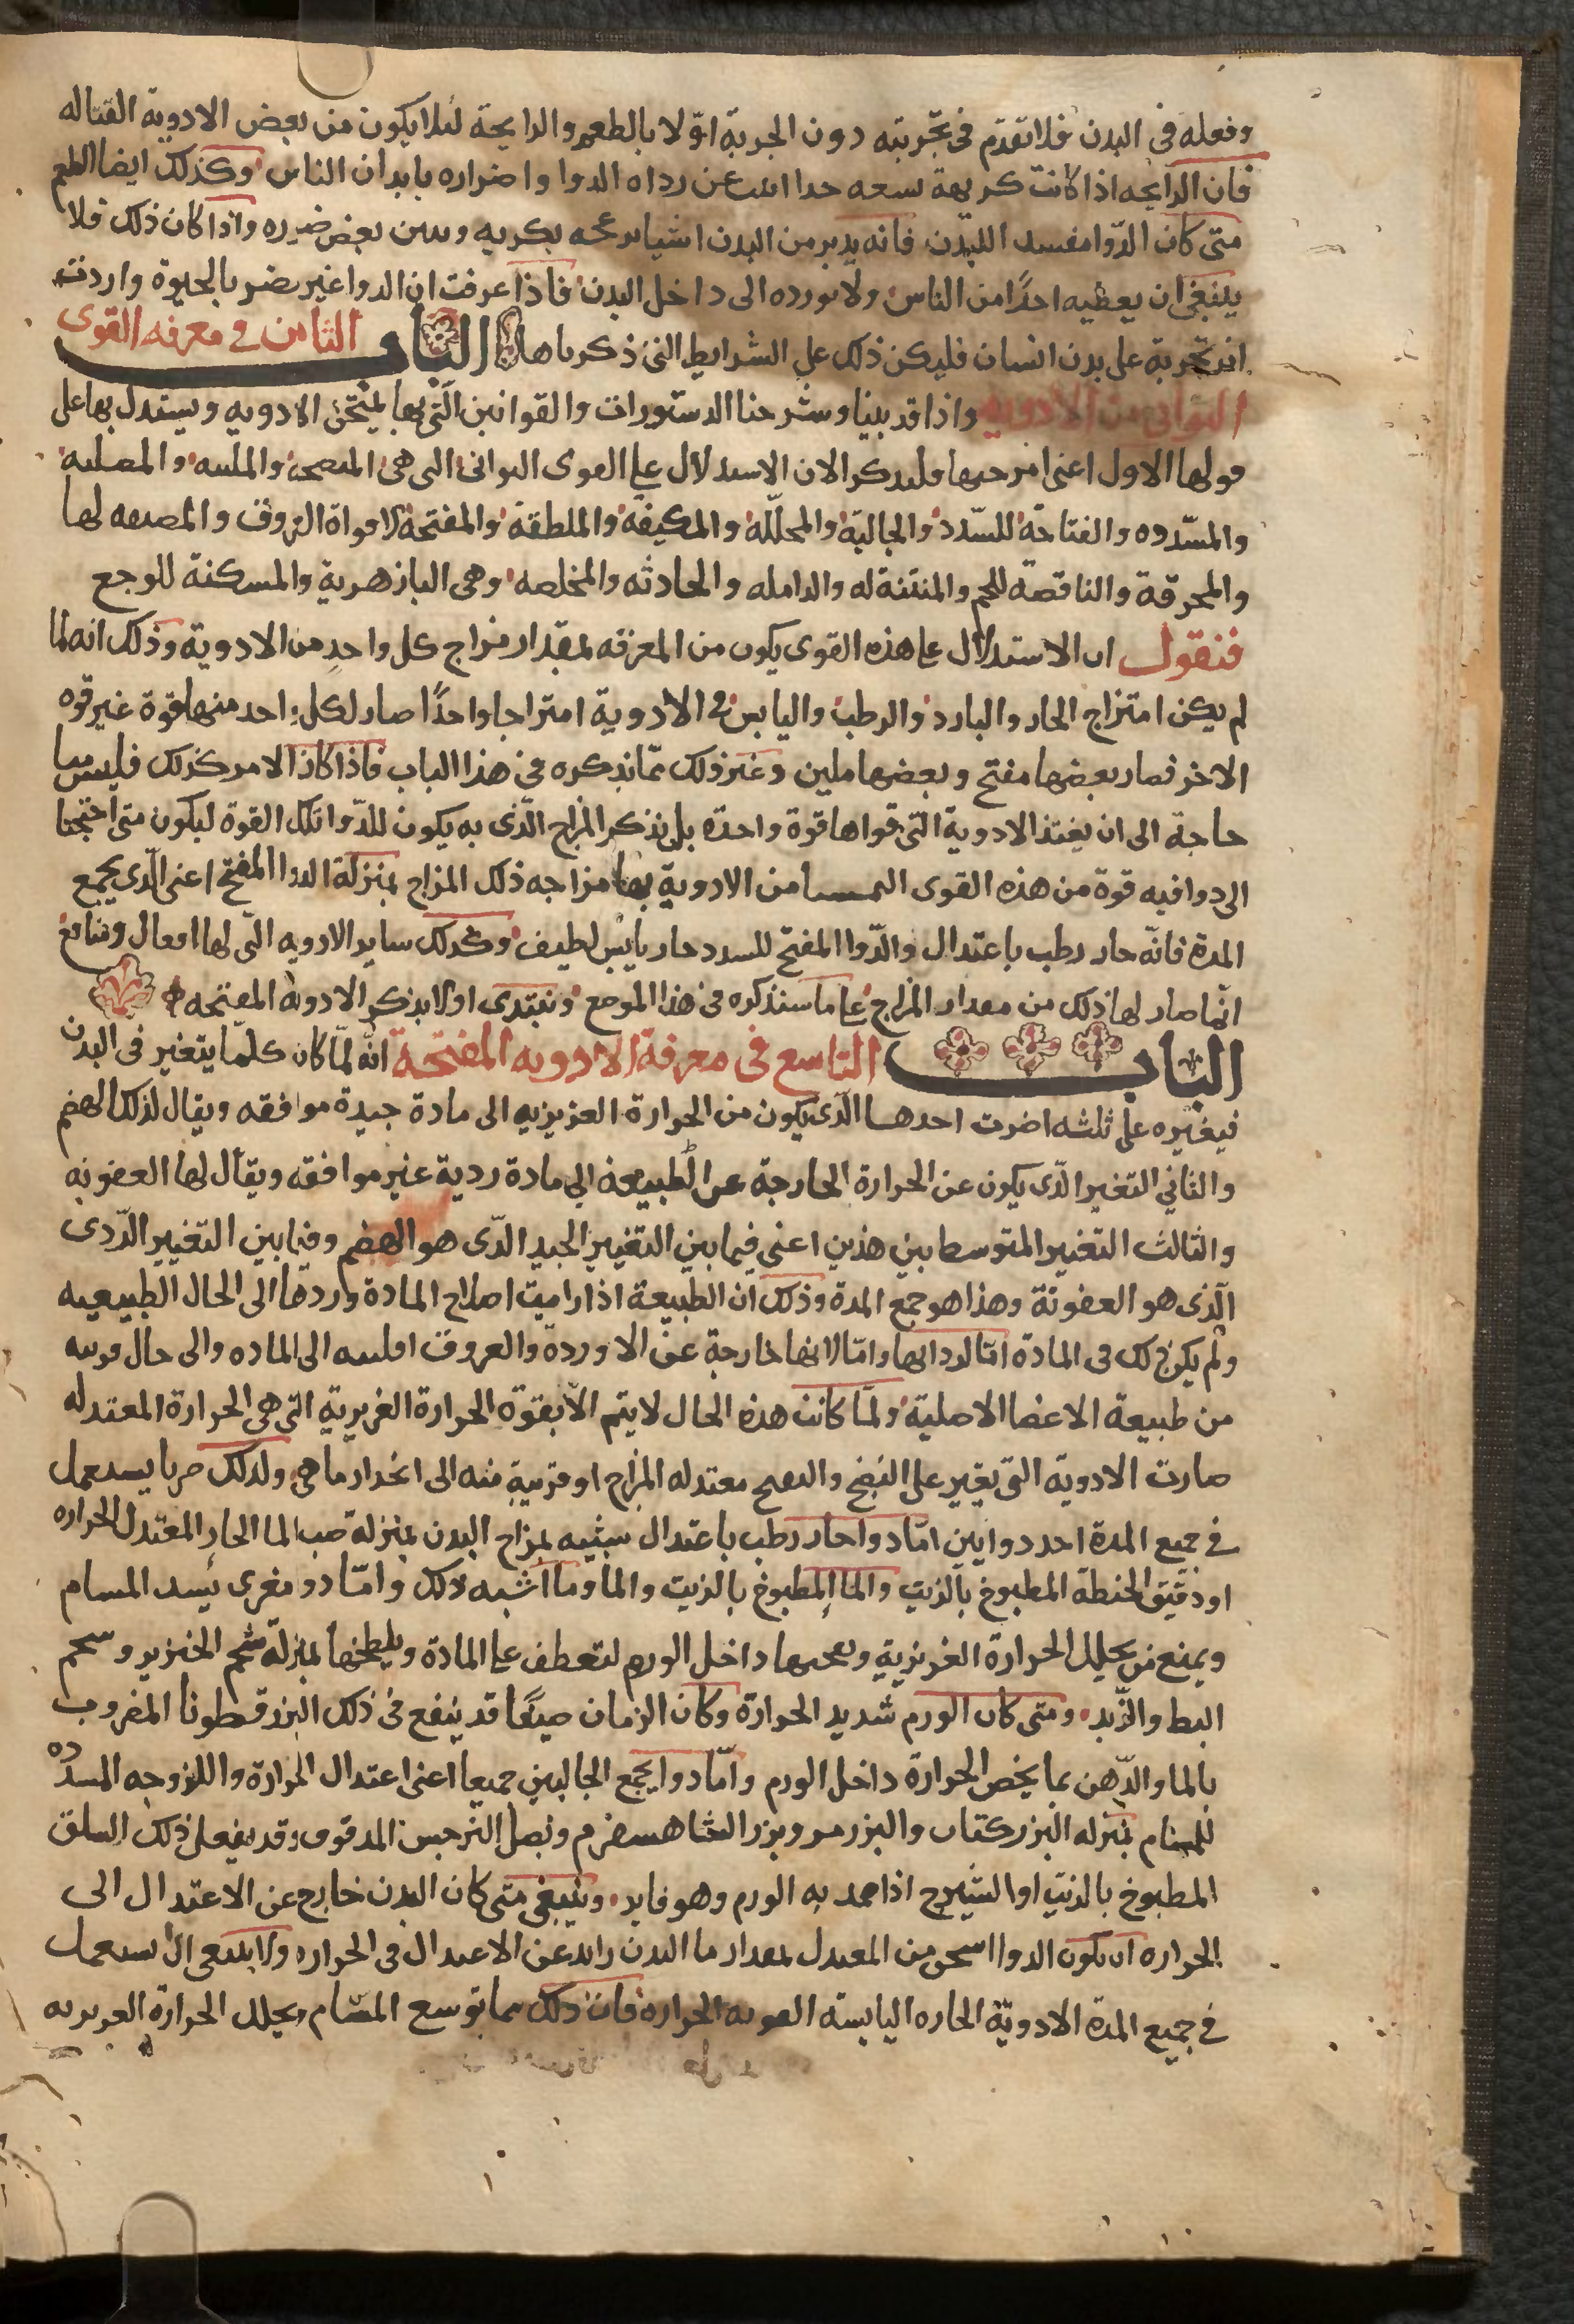 وفعله فى البدن فلا تقدم فى تجربته دون الجربة اوّلا بالطعم والرايحة لئلا يكون من بعض الادوية القتاله
فان الرايحه اذا كانت كريهة سعه حدا انبت عن رداه الدوا واضراره بابدان الناس وكذلك ايضا الطعم
متى كان الدّوا مفسد اللبدن فانه يدبر من البدن اشيا بكريه وبين بعض ضرره واذا كان ذلك فلا
ينبغى ان يعطيه احدًا من الناس ولا نورده الى داخل البدن فاذا عرفت ان الدوا غير مضر بالحيوة واردت
ان تجربة على بدن انسان فليكن ذلك على الشرايط التى ذكرناها الباب الثامن فى معرفه القوى
الثوانى من الادويه واذا قد بينا وشرحنا الدستورات والقوانين الّتى بها يمتحن الادويه ويستدل بها على
قولها الاول اعنى امزجتها فلنذكر الان الاستدلال على القوى الثوانى التى هى المنضجة والملينه والمصلبه
والمسّدده والفتاحة للسّدد والجالية والمحلّله والمكيفة والملطفة والمفتحة لافواة العروق والمضيقه لها
والمحرقة والناقصة للحم والمنتنة له والدامله والحادثه والمخلصه وهى البازهرية والمسكنة للوجع
فنقول ان الاستدلال على هذه القوى يكون من المعرفه بمقدار مزاج كل واحد من الادوية وذلك انه لما
لم يكن امتزاج الحار والبارد والرطب واليابس فى الادوية امتزاجا واحدًا صار لكل واحد منها قوة غير قوه
الاخر فصار بعضها مفتح وبعضها ملين وغير ذلك ممّا نذكره فى هذا الباب فاذا كان الامر كذلك فليس بنا
حاجة الى ان الادوية التى قواها قوة واحدة بل نذكر المزاج الّذى به يكون للدّوا تلك القوة ليكون متى احتجنا
الى دوا فيه قوة من هذه القوى التمسنا من الادوية بها مزاجه ذلك المزاج بمنزلة الدوا المفتح اعنى الّذى يجمع
المدة فانّه حار رطب باعتدال والدّوا المفتح للسدد حار يابس لطيف وكذلك ساير الادويه الّتى لها افعال ومنافع
انّما صار لها ذلك من مقدار المزاج على ما سنذكره فى هذا الموضع ونبتدى اولا بذكر الادويه المفتحه
الباب التاسع فى معرفة الادويه المفتحة انّه لمّا كان كلمّا يتغير فى البدن
فيغيره على ثلثه اضرب احدها الّذى يكون من الحرارة العزيزيه الى مادة جيدة موافقه ويقال لذلك الهضم
والثانى التغير الّذى يكون عن الحرارة الخارجة عن الطبيعه الى مادة ردية غير موافقه ويقال لها العفونه
والثالث التغير المتوسط بين هذين اعنى فيما بين التغيير الجيد الّذى هو الهضم وفيما بين التغيير الرّدى
الّذى هو العفونة وهذا هو جمع المدة وذلك ان الطبيعة اذا راميت اصلاح المادة وردها الى الحال الطبيعيه
ولم يكن ذلك فى المادة امّا لرداتها وامّا لانها خارجة عن الاوردة والعروق اقلبته الى الماده والى حال قريبه
من طبيعة الاعضا الاصلية ولمّا كانت هذه الحال لا يتم الّا بقوّة الحرارة الغريزية التى هى الحرارة المعتدله
صارت الادوية التى تغير على النضج والتفتح معتدله المزاج او قريبة منه الى انحدار ما هى ولذلك صرنا نستعمل
فى جميع المدة احد دوايين امّا دوا حار رطب باعتدال شبيه بمزاج البدن بمنزلة صب الما الحار المعتدل الحراره
او دقيق الحنطة المطبوخ بالزيت والما المطبوخ بالزيت والما وما اشبه ذلك وامّا دوا مغرى يسد المسام
ويمنع من يحلل الحرارة الغريزية داخل الورم لتعطف على المادة ويلطخها بمنزلة شحم الخنزير وشحم
البط والزّبد ومتى كان الورم شديد الحرارة وكان الزمان صيفًا قد ينفع فى ذلك البزرقطونا المضروب
بالما والدّهن بما يخص الحرارة داخل الورم وامّا دوا يجمع الحالين جميعا اعنى اعتدال الحرارة واللزوجه المسدّده
للمسام بمنزله البزر كتان والبزر مر وبزر الشاهسفرم وبصل النرجس المدقوق وقد يفعل ذلك السلق
المطبوخ بالزيت او الشيرج اذا ضمد به الورم وهو فاير وينبغى متى كان البدن خارج عن الاعتدال الى
الحراره ان يكون الدوا اسخن من المعتدل بمقدار ما البدن زايد عن الاعتدال فى الحراره ولا ينبغى ان يستعمل
فى جميع المدة الادويّة الحاره اليابسه القويه الحراره فان ذلك مما توسع المسام ويحلل الحرارة الغريزيه